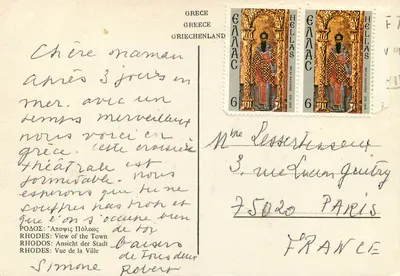 GRECE
GREECE
GRIECHENLAND
Chère maman
après 3 jours en
mer. avec un
temps merveilleux
nous voici en
grèce. cette croisière
théâtrale est
formidable. nous
esperons que tu ne
souffres pas trop et
que l'on s'occupe bien
de toi
baisers
de tous deux
Simone Robert
ΡΟΔΟΣ: Ἄποψις Πόλεως
RHODES: View of the Town
RHODOS: Ansicht der Stadt
RHODES: Vue de la Ville
ΕΛΛΑΣ HELLAS
6
ΕΛΛΑΣ HELLAS
6
Mme
3, rue
75020 PARIS
FRANCE